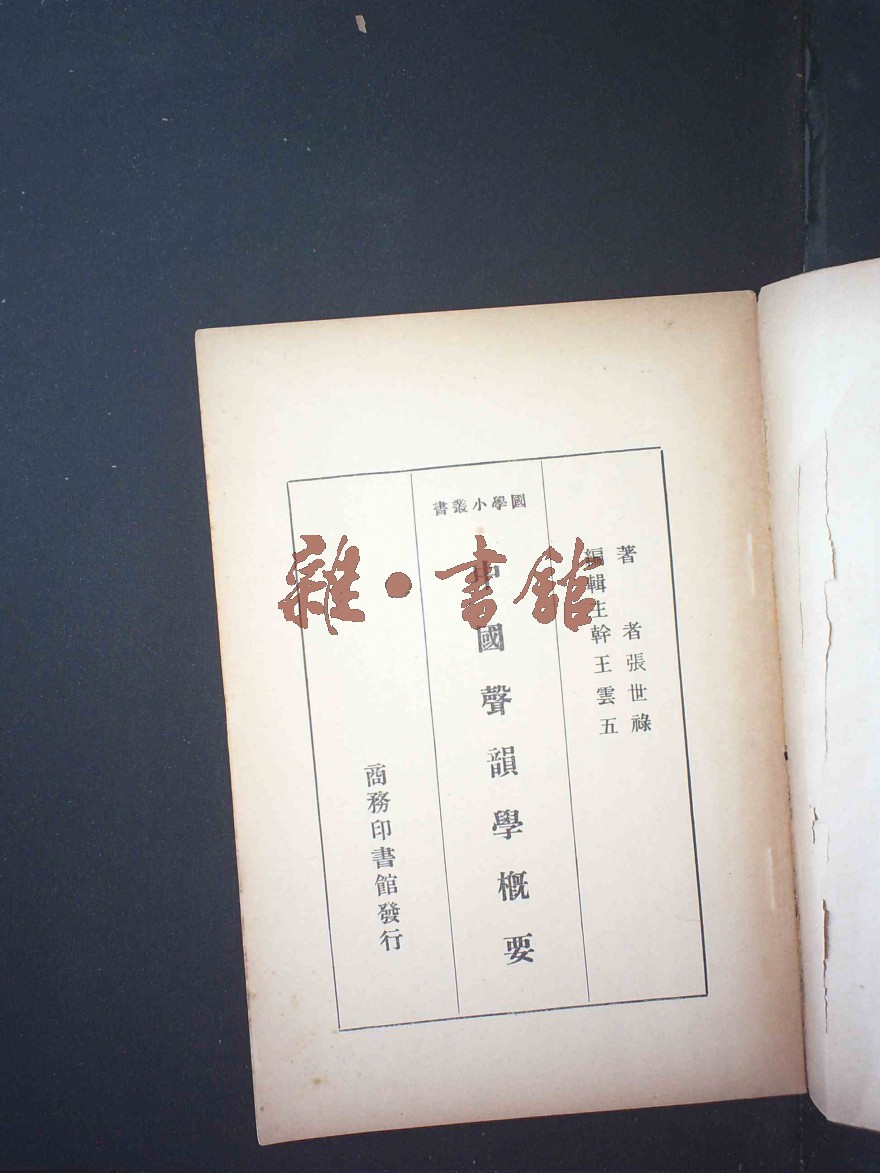 著者張世祿
編輯主幹王雲五
國學小叢書
中國聲韻學概要
商務印書館發行
雜·書館